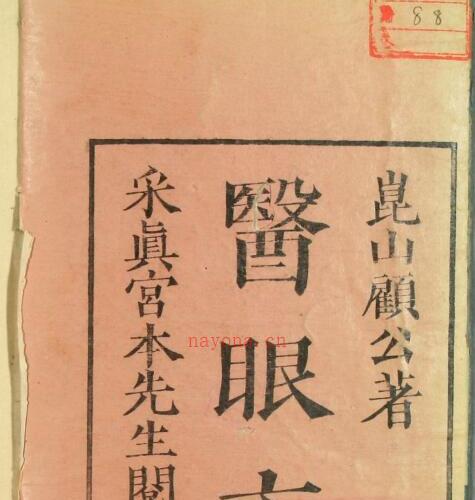 88
崑山顧公著
醫眼
采眞宮本先生閱
nayona.cn